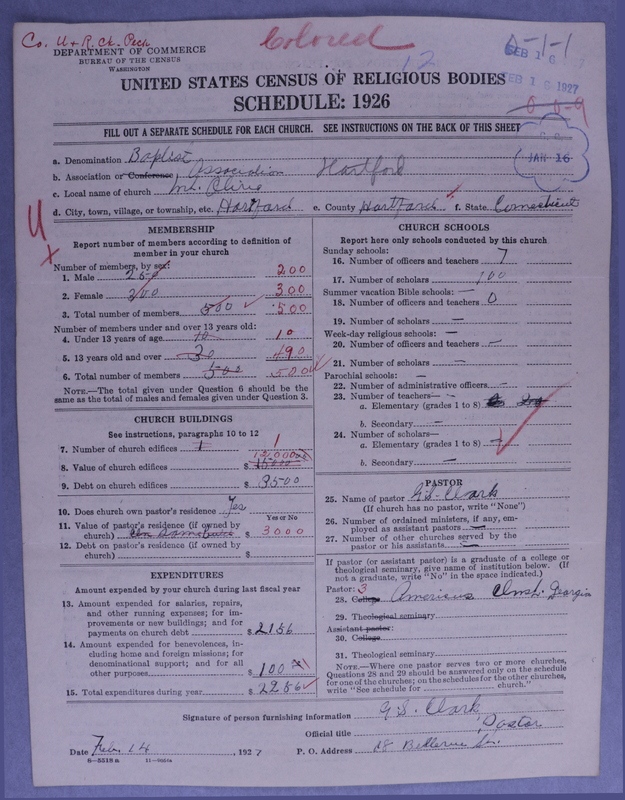 Co. U + R. Ch. Peck
Colored
12
DEPARTMENT OF COMMERCE
BUREAU OF THE CENSUS
WASHINGTON
FEB 16
FEB 16 1927
UNITED STATES CENSUS OF RELIGIOUS BODIES
SCHEDULE: 1926
FILL OUT A SEPARATE SCHEDULE FOR EACH CHURCH. SEE INSTRUCTIONS ON THE BACK OF THIS SHEET
JAN 16
a. Denomination Baptist
b. Association or Conference Association Hartford
c. Local name of church Mt. Olive
d. City, town, village, or township, etc. Hartford e. County Hartford f. State Connecticut
MEMBERSHIP
Report number of members according to definition of
member in your church
Number of members, by sex:
1. Male 250 200
2. Female 300
3. Total number of members 500 500
Number of members under and over 13 years old:
4. Under 13 years of age 10 10
5. 13 years old and over 30 490
6. Total number of members 500 500
NOTE.—The total given under Question 6 should be the
same as the total of males and females given under Question 3.
CHURCH BUILDINGS
See instructions, paragraphs 10 to 12
7. Number of church edifices 1 1
8. Value of church edifices $ 15000
9. Debt on church edifices $ 3500
10. Does church own pastor's residence Yes
Yes or No
11. Value of pastor's residence (if owned by
church) $ 3000
12. Debt on pastor's residence (if owned by
church) $
EXPENDITURES
Amount expended by your church during last fiscal year
13. Amount expended for salaries, repairs,
and other running expenses; for im-
provements or new buildings; and for
payments on church debt $ 2156
14. Amount expended for benevolences, in-
cluding home and foreign missions; for
denominational support; and for all
other purposes $ 100
15. Total expenditures during year $ 2256
CHURCH SCHOOLS
Report here only schools conducted by this church
Sunday schools:
16. Number of officers and teachers 7
17. Number of scholars 100
Summer vacation Bible schools: —
18. Number of officers and teachers 0
19. Number of scholars —
Week-day religious schools: —
20. Number of officers and teachers —
21. Number of scholars —
Parochial schools: —
22. Number of administrative officers —
23. Number of teachers—
a. Elementary (grades 1 to 8)
b. Secondary —
24. Number of scholars—
a. Elementary (grades 1 to 8)
b. Secondary —
PASTOR
25. Name of pastor G.S. Clark
(If church has no pastor, write "None")
26. Number of ordained ministers, if any, em-
ployed as assistant pastors —
27. Number of other churches served by the
pastor or his assistants —
If pastor (or assistant pastor) is a graduate of a college or
theological seminary, give name of institution below. (If
not a graduate, write "No" in the space indicated.)
Pastor: 3
28. College Americus Inst. Georgia
29. Theological seminary
Assistant pastor:
30. College
31. Theological seminary
NOTE.—Where one pastor serves two or more churches,
Questions 28 and 29 should be answered only on the schedule
for one of the churches; on the schedules for the other churches,
write "See schedule for church."
Signature of person furnishing information G.S. Clark
Official title Pastor
Date Feb. 14, 1927 P. O. Address 28 Bellevue St.